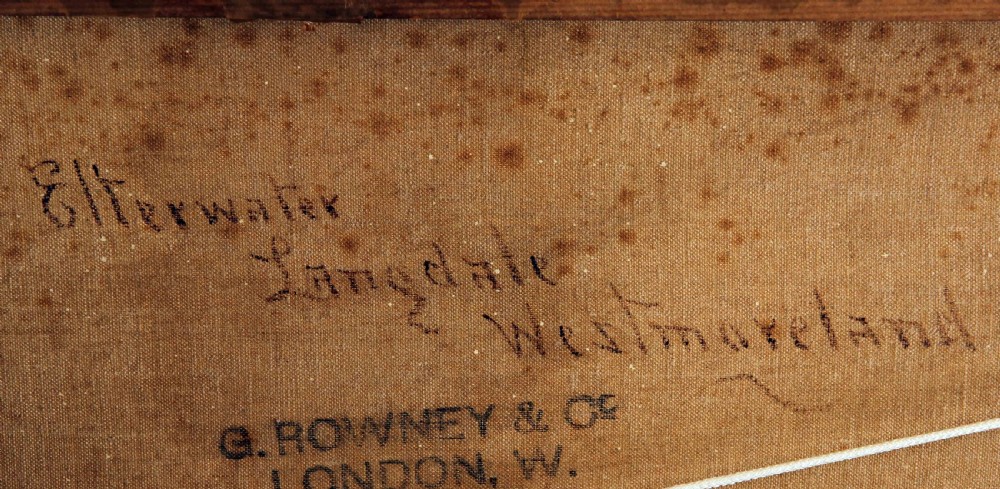 Elterwater
Langdale
Westmoreland
G. ROWNEY & Co
LONDON, W.